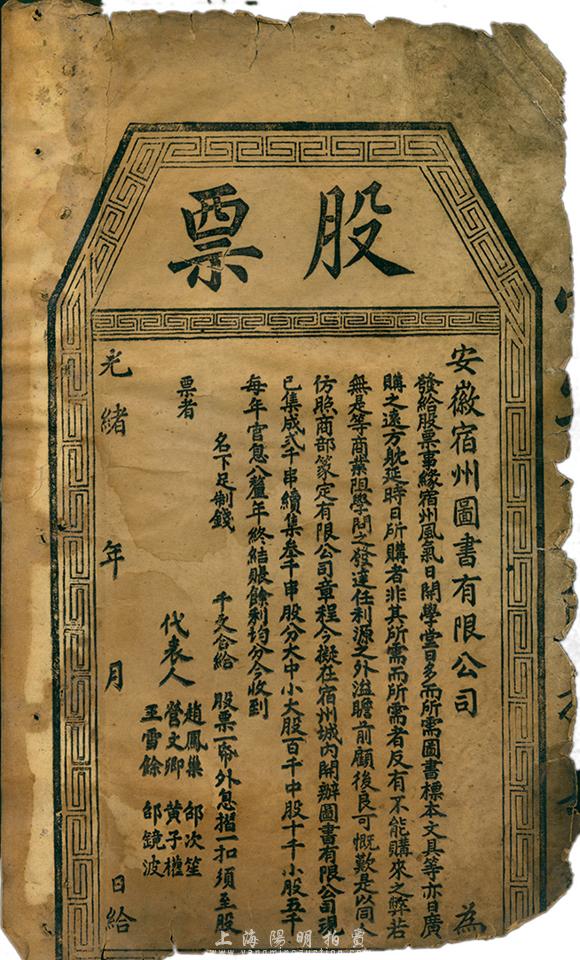 股票
安徽宿州圖書有限公司為
發給股票事緣宿州風氣日開學堂日多而所需圖書標本文具等亦日廣
購之遠方躭延時日所購者非其所需而所需者反有不能購來之弊若
無是等商業阻學問之發達任利源之外溢瞻前顧後良可慨歎是以同人
仿照商部篆定有限公司章程今擬在宿州城內開辦圖書有限公司現
已集成弍千串續集叁千串股分大中小大股百千中股十千小股五千
每年官息八釐年終結賬餘利均分今收到
名下足制錢 千文合給 股票一帋外息摺一扣須至股
票者
代表人
趙鳳巢 邵次笙
營文卿 黃子
王雪餘 邵鏡波
光緒 年 月 日給
上海陽明拍賣